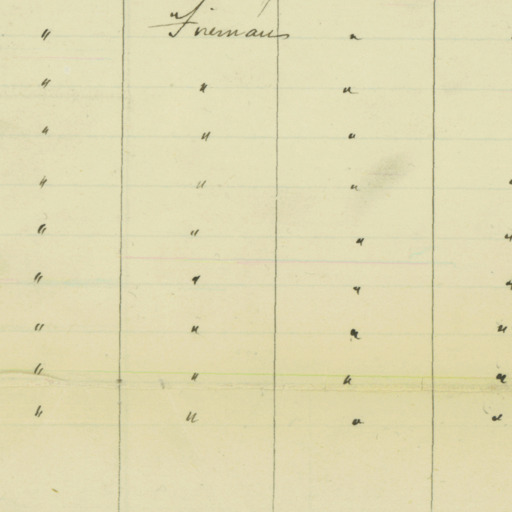 " Fireman " 
" " " 
" " " 
" " " "
" " " "
" " " "
" " " "
" " " "
" " " "